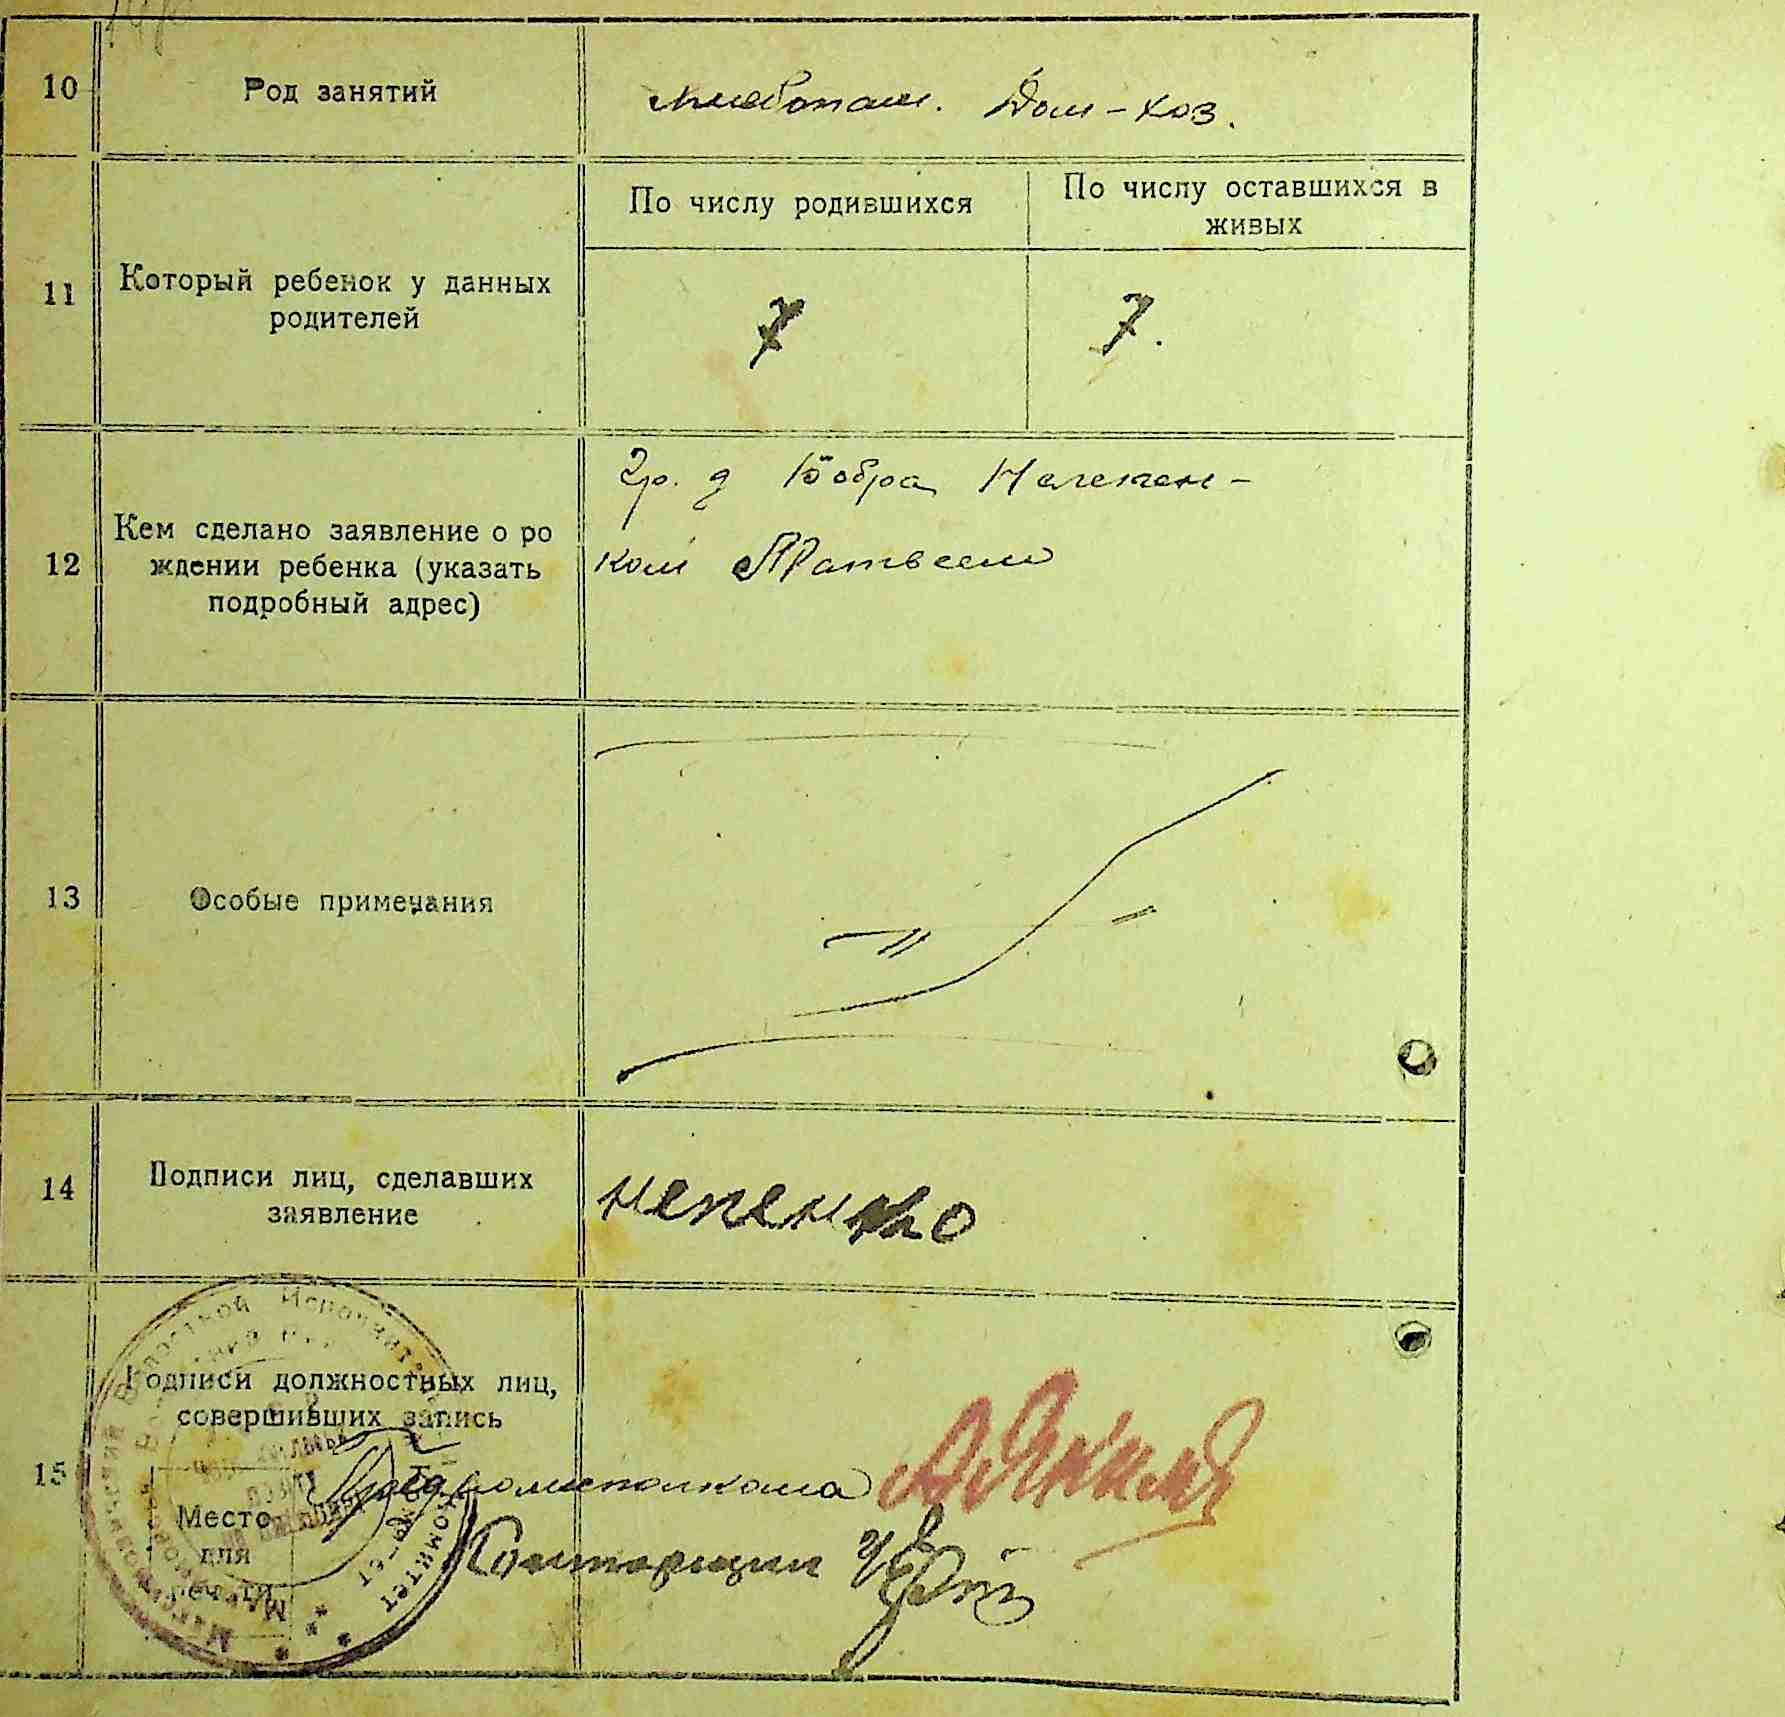 10 Род занятий Хлебопаш. Дом-хоз.
По числу родившихся
По числу оставшихся в
живых
11 Который ребенок у данных
родителей
7
7.
12 Кем сделано заявление о ро
ждении ребенка (указать
подробный адрес)
Гр. д Бобра
ком Матвеем
13 Особые примечания
14 Подписи лиц, сделавших
заявление
15 Подписи должностных лиц,
совершивших запись
Место
для
печати
Волостной Исполнит
Комитет